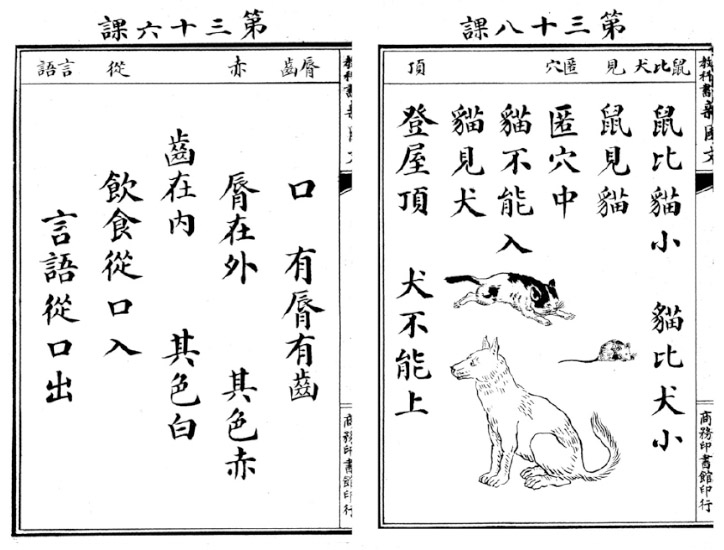 第三十六課
脣齒 赤 從 言語
口 有脣有齒
脣在外 其色赤
齒在內 其色白
飲食從口入
言語從口出
商務印書館印行
第三十八課
鼠比犬 見 匿穴 頂
鼠比貓小 貓比犬小
鼠見貓
匿穴中
貓不能入
貓見犬
登屋頂 犬不能上
商務印書館印行